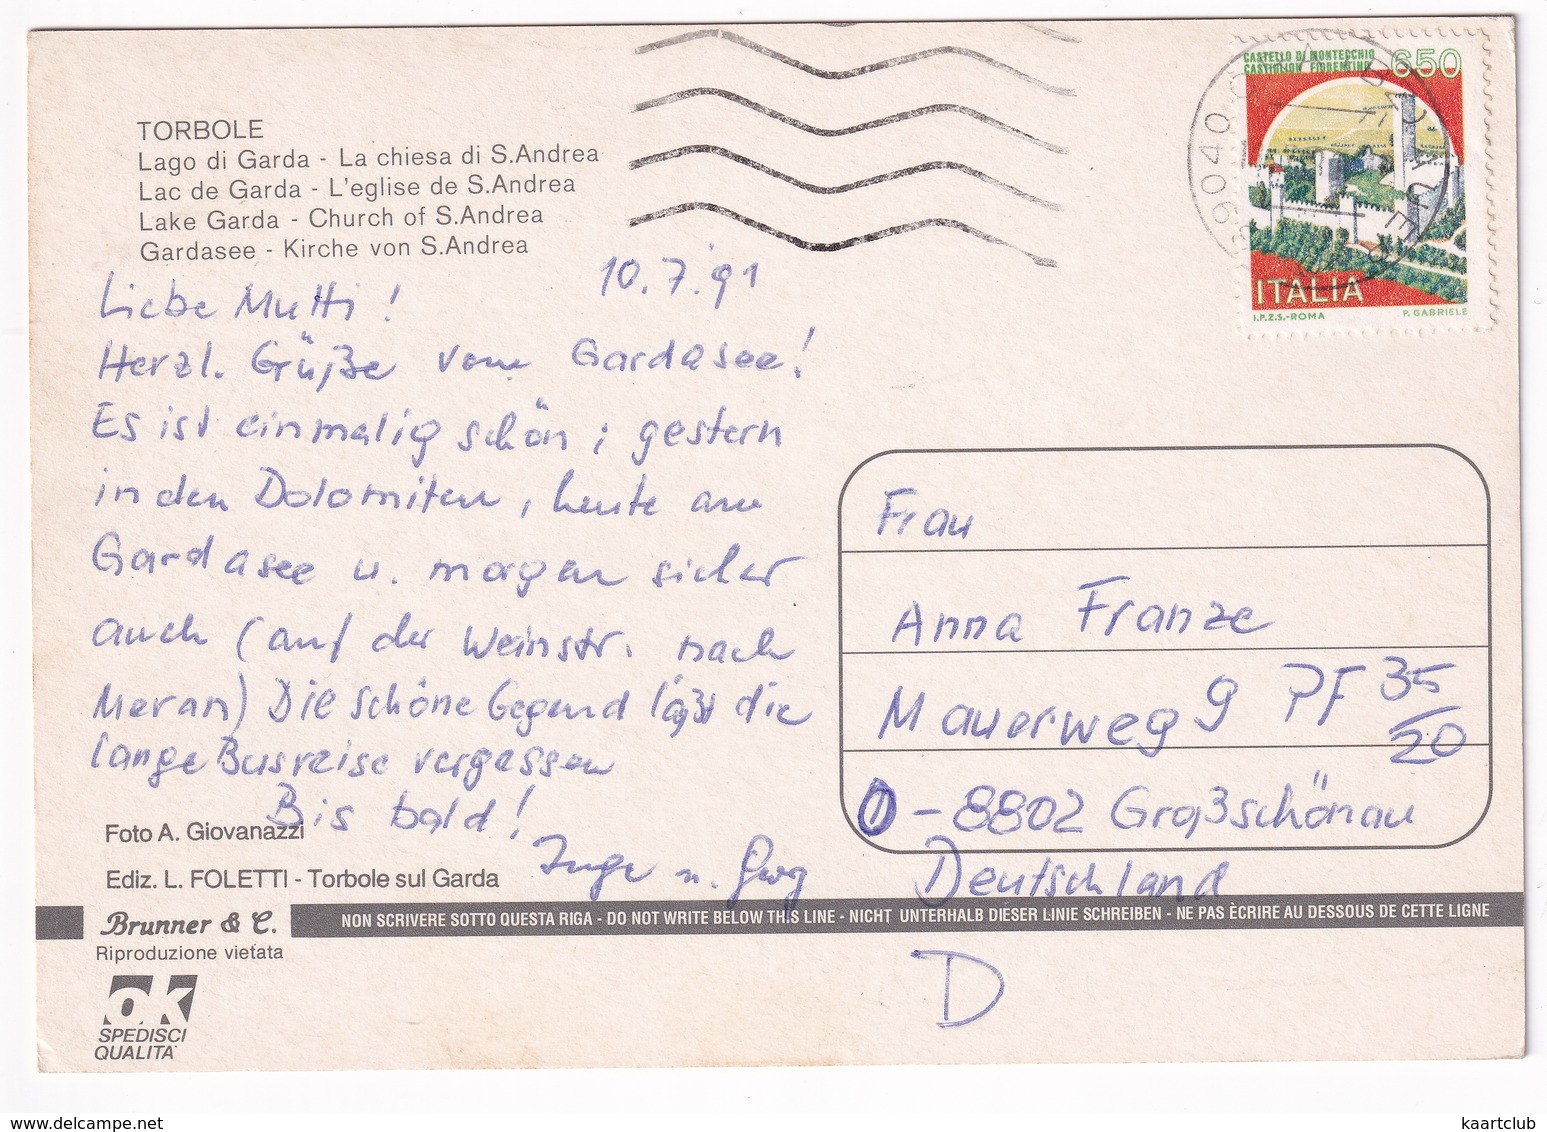 TORBOLE
Lago di Garda - La chiesa di S.Andrea
Lac de Garda - L'eglise de S.Andrea
Lake Garda - Church of S.Andrea
Gardasee - Kirche von S.Andrea
10.7.'91
Liebe Mutti!
Herzl. Grüße vom Gardasee!
Es ist einmalig schön; gestern
in den Dolomiten, heute am
Gardasee u. morgen sicher
auch (auf der Weinstr. nach
Meran) Die schöne Gegend läßt die
lange Busreise vergessen
Bis bald!
Inge u. Georg
Foto A. Giovanazzi
Ediz. L. FOLETTI - Torbole sul Garda
CASTELLO DI MONTECCHIO
CASTIGLION FIORENTINO
650
ITALIA
I.P.Z.S.-ROMA P. GABRIELE
39040
Frau
Anna Franze
Mauerweg 9 PF 35/20
D-8802 Großschönau
Deutschland
Brunner & C.
NON SCRIVERE SOTTO QUESTA RIGA - DO NOT WRITE BELOW THIS LINE - NICHT UNTERHALB DIESER LINIE SCHREIBEN - NE PAS ÈCRIRE AU DESSOUS DE CETTE LIGNE
Riproduzione vietata
D
OK
SPEDISCI
QUALITA'
www.delcampe.net
kaartclub